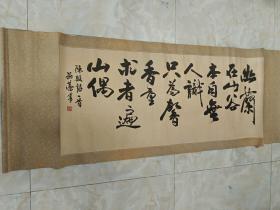 幽蘭
在山谷
本自無
人識
只為馨
香重
求者遍
山隅
陳毅詩一首